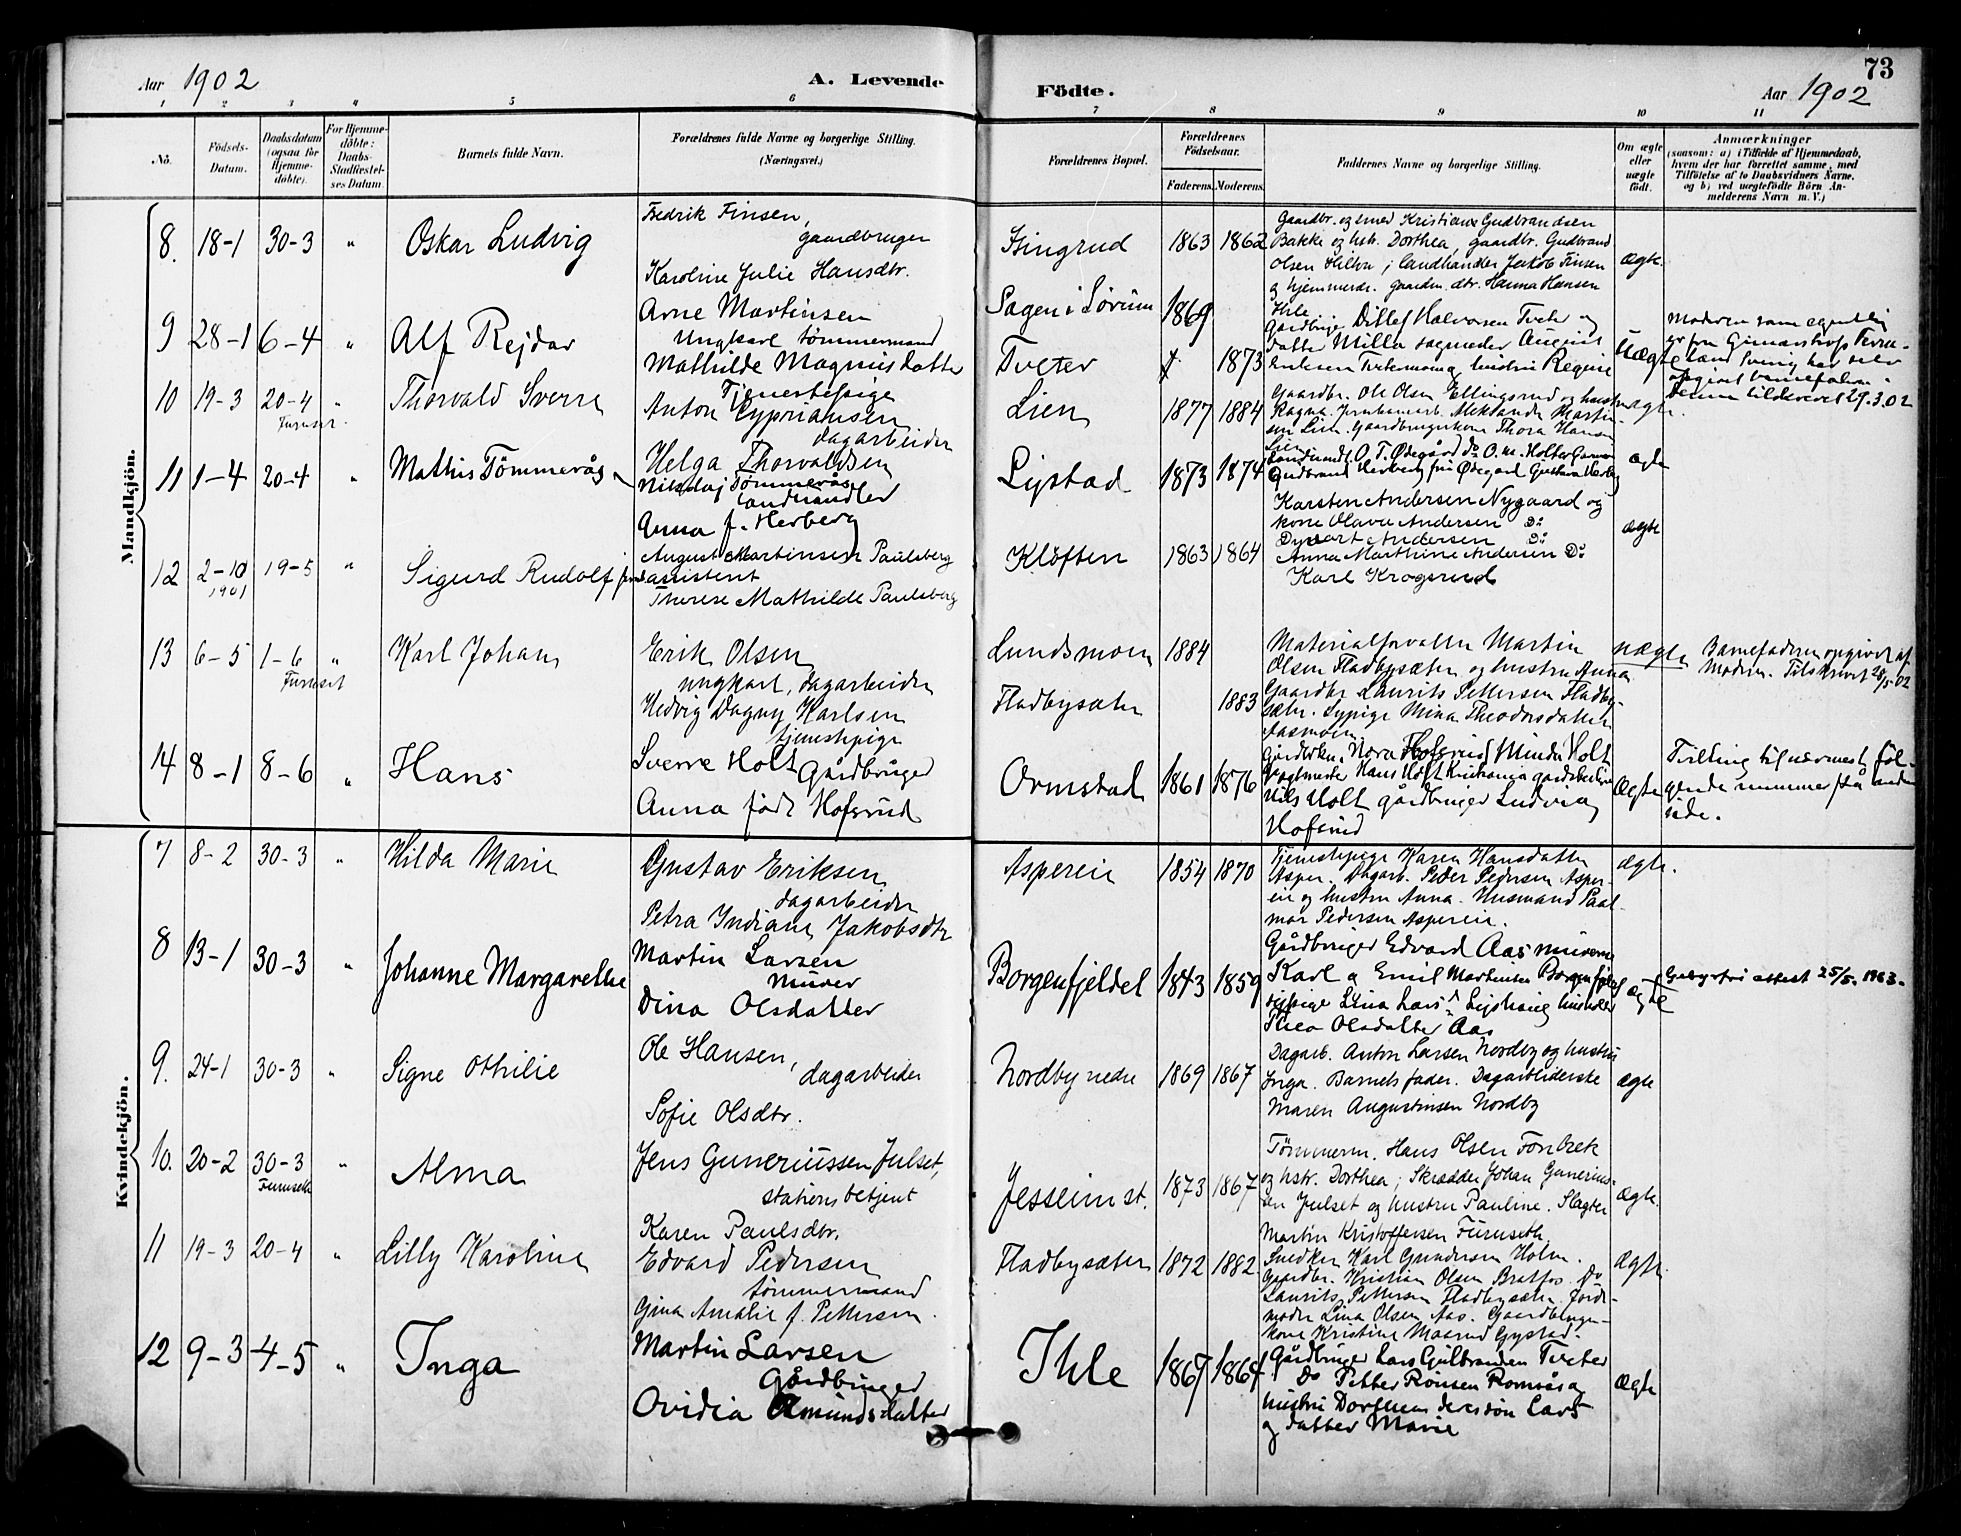 73
Aar 1902
A. Levende
Fødte.
Aar 1902
1 2 3 4 5 6 7 8 9 10 11
No.
Fødsels-Datum.
Daabsdatum (ogsaa for Hjemme-døbte).
For Hjemme-døbte: Daabs-Stadfæstel-ses Datum.
Barnets fulde Navn.
Forældrenes fulde Navne og borgerlige Stilling. (Næringsvei.)
Forældrenes Bopæl.
Forældrenes Fødselsaar.
Faderens. Moderens.
Faddernes Navne og borgerlige Stilling.
Om ægte eller uægte født.
Anmærkninger
(saasom: a) i Tilfælde af Hjemmedaab, hvem der har forrettet samme, med Tilføielse af to Daabsvidners Navne, og b) ved uægtefødte Børn An-melderens Navn m. V.)
Mandkjøn.
8. 18-1 30-3 " Oskar Ludvig
Fredrik Finsen,
gaardbruger
Karoline Julie Hansdtr.
1863 1862
Gaardbr. og smed Kristian Gudbrandsen
Bakke og hstr. Dorthea, gaardbr. Gudbrand
Olsen ; landhandler Jakob Finsen
Hanna Hansen
Ihle
ægte.
9 28-1 6-4 " Alf Rejdar
Arne Martinsen
Ungkarl tømmermand
Mathilde Magnusdatter
Tjenestepige
Sagen i Sørum
Tveter
1869
1873
Gårdbruger Ditlef Halvorsen Tveter og
datter Milla August
Regine
Uægte
Moderen som egentlig
er fra
opgivet barnefaderen
29.3.02
10 19-3 20-4 " Thorvald Sverre
Furuset.
Anton Cypriansen
dagarbeider
Helga Thorvaldsen
Lien
1877 1884
Gaardbr. Ole Olsen Ellingsrud og hustru
Ragna. Jernbanearb. Aleksander Martin-
sen Lien. Gaardbrugerkone Thora Hansen
Lien
ægte.
11 1-4 20-4 " Mathis Tømmerås
Tømmerås
Landhandler
Anna f. Herberg
Lystad
1873 1874
O. T. Ødegård
Gudbrand Herberg
ægte
12 2-10 1901 19-5 " Sigurd Rudolf
August Martinsen Paulsberg
assistent
Therese Mathilde Paulsberg
Kløften
1863 1864
Karsten Andersen Nygaard og
kone Olava Andersen Do
Andersen Do
Anna Marthine Andersen Do
Karl Krogsrud
ægte
13 6-5 1-6 " Karl Johan
Furuset
Erik Olsen
ungkarl, dagarbeider
Hedvig Dagny Karlsen
tjenestepige
Lundsmoen
Fladbysæter
1884
1883
Materialforvalter Martin
Olsen Fladbysæter og hustru Anna
Gaardbr. Laurits Pettersen Fladby-
sæter. Sypige Mina Theodorsdatter
Aasmoen
uægte
Barnefaderen opgivet af
Moderen. Tilskrevet 28/5 02
14 8-1 8-6 " Hans
Sverre Holt Gårdbruger
Anna født Hofsrud
Ormstad
1861 1876
Nora Hofsrud Minda Holt
Hans Holt Kristiania
Nils Holt gårdbruger Ludvig
Hofsrud
Ægte
Tvilling til nærmest føl-
gende nummer på anden
side.
Kvindekjøn.
7 8-2 30-3 " Hilda Marie
Gustav Eriksen,
dagarbeider
Petra Indiane Jakobsdtr
Aspereie
1854 1870
Tjenestepige Karen Hansdatter
Asper. Dagarb. Peder Pedersen Asper-
eie og hustru Anna. Husmand Paal
Pedersen Aspereie.
ægte.
8 13-1 30-3 " Johanne Margarethe
Martin Larsen
Murer
Dina Olsdatter
Borgenfjeldet
1843 1859
Gårdbruger Edvard Aas
Karl a Emil Martinsen Borgenfjeldet
sypige Lina
Thea Olsdatter Aas
ægte
attest 25/5. 1963.
9. 24-1 30-3 " Signe Othilie
Ole Hansen,
dagarbeider
Sofie Olsdtr.
Nordby nedre
1869 1867
Dagarb. Anton Larsen Nordby og hustru
Inga. Barnets fader. Dagarbeiderske
Maren Augustinsen Nordby
ægte
10. 20-2 30-3 " Alma
Furuseth
Jens Guneriussen Julset,
stationsbetjent
Karen Paulsdtr.
Jessheim st.
1873 1867
Tømmerm. Hans Olsen Fonbæk
og hstr. Dorthea; Skrædder Johan Gunerius-
sen Julset og hustru Pauline. Slagter
Martin Kristoffersen Furuseth
ægte.
11 19-3 20-4 " Lilly Karoline
Edvard Pedersen
tømmermand
Gina Amalie f. Pettersen.
Fladbysæter
1872 1882
Snedker Karl Gundersen Holm.
Gaardbr. Kristian Olsen Bratfos. Do
Laurits Pettersen Fladbysæter. Jord-
moder Lina Olsen Aas. Gaardbruger-
kone Kristine Maarud Gystad.
Ægte.
12 9-3 4-5 " Inga
Martin Larsen
Gårdbruger
Ovidia Amundsdatter
Ihle
1867 1864
Gårdbruger Lars Gulbrandsen Tveter
Do Petter
hustru Dorthea deres søn Lars
og datter Marie
ægte